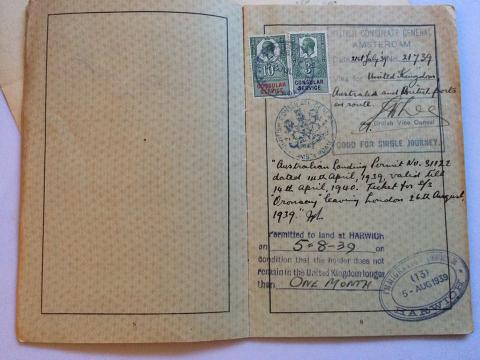 BRITISH CONSULATE GENERAL
AMSTERDAM
Date 21st July 39 No. 31739
Visa for
United Kingdom,
Australia and British ports
en route.
British Vice Consul
GOOD FOR SINGLE JOURNEY.
CONSULAR SERVICE
CONSULAR SERVICE
"Australian Landing Permit No. 31122
dated 14th April, 1939, valid till
14th April, 1940. Ticket for S/S
"Oronsay" leaving London 26th August,
1939."
Permitted to land at HARWICH
on 5-8-39 on
condition that the holder does not
remain in the United Kingdom longer
than ONE MONTH
IMMIGRATION OFFICER
(13)
5-AUG 1939
HARWICH
8